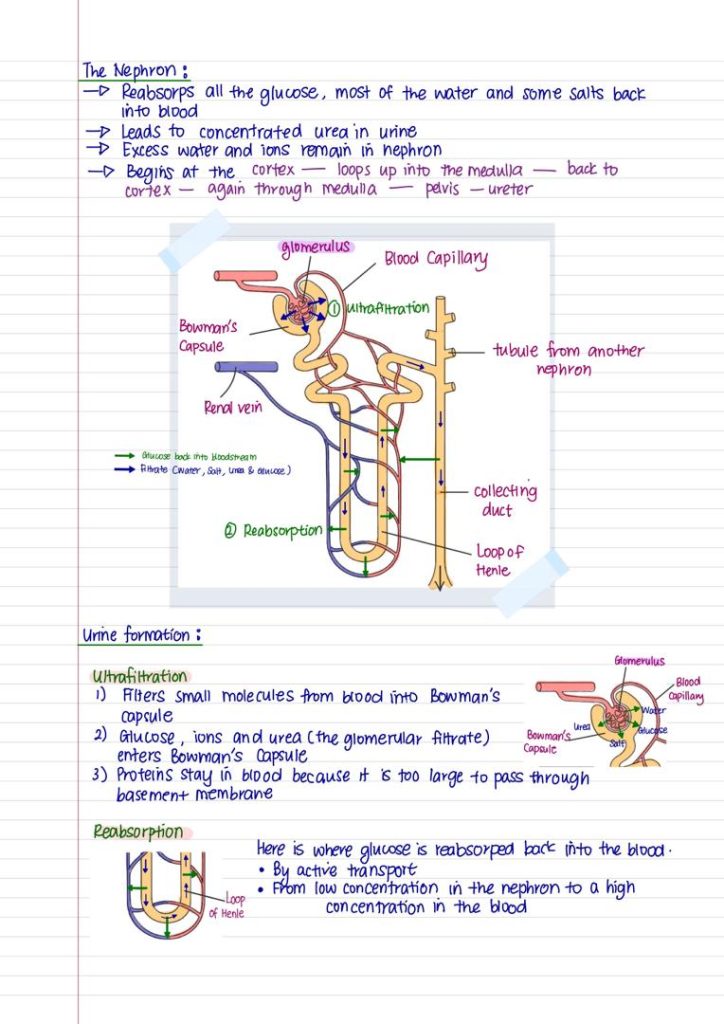 The Nephron :
→ Reabsorps all the glucose, most of the water and some salts back
into blood
→ Leads to concentrated urea in urine
→ Excess water and ions remain in nephron
→ Begins at the cortex — loops up into the medulla — back to
cortex — again through medulla — pelvis — ureter
glomerulus
Blood Capillary
① Ultrafiltration
Bowman's
Capsule
tubule from another
nephron
Renal vein
Glucose back into bloodstream
Filtrate (Water, Salt, Urea & Glucose)
collecting
duct
② Reabsorption
Loop of
Henle
Urine formation :
Ultrafiltration
1) Filters small molecules from blood into Bowman's
capsule
2) Glucose, ions and urea (the glomerular filtrate)
enters Bowman's Capsule
3) Proteins stay in blood because it is too large to pass through
basement membrane
Glomerulus
Blood
Capillary
Water
Urea
Glucose
Bowman's
Capsule
Salt
Reabsorption
Here is where glucose is reabsorped back into the blood.
• By active transport
• From low concentration in the nephron to a high
concentration in the blood
Loop
of Henle